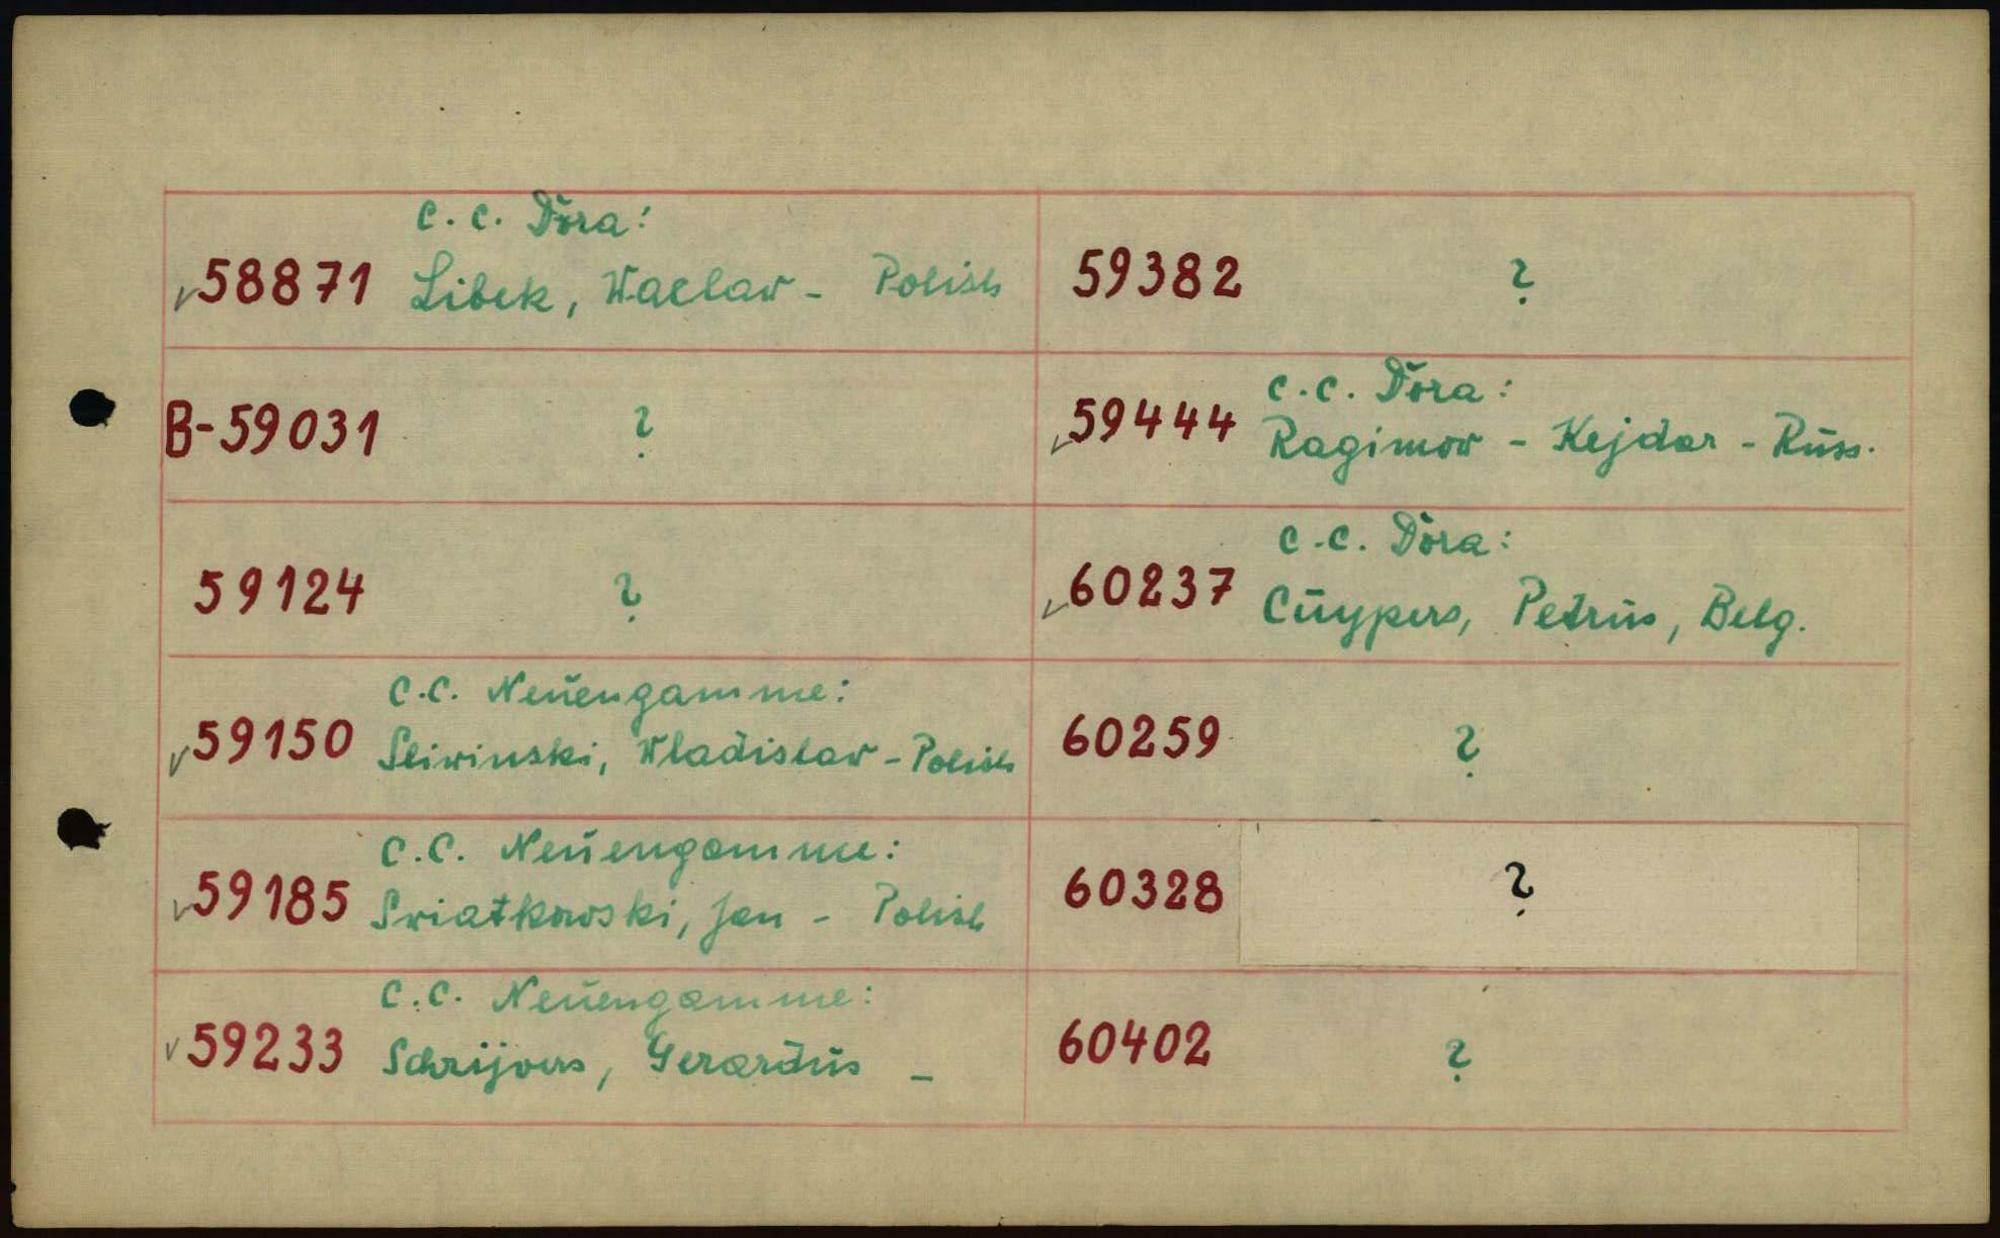 C.C. Dora:
58871 Libek, Waclaw - Polish
B-59031 ?
59124 ?
C.C. Neuengamme:
59150 Sliwinski, Wladislaw - Polish
C.C. Neuengamme:
59185 Swiatkowski, Jan - Polish
C.C. Neuengamme:
59233 Schrijvers, Gerardus -
59382 ?
C.C. Dora:
59444 Ragimow - Kejdar - Russ.
C.C. Dora:
60237 Cuypers, Petrus, Belg.
60259 ?
60328 ?
60402 ?